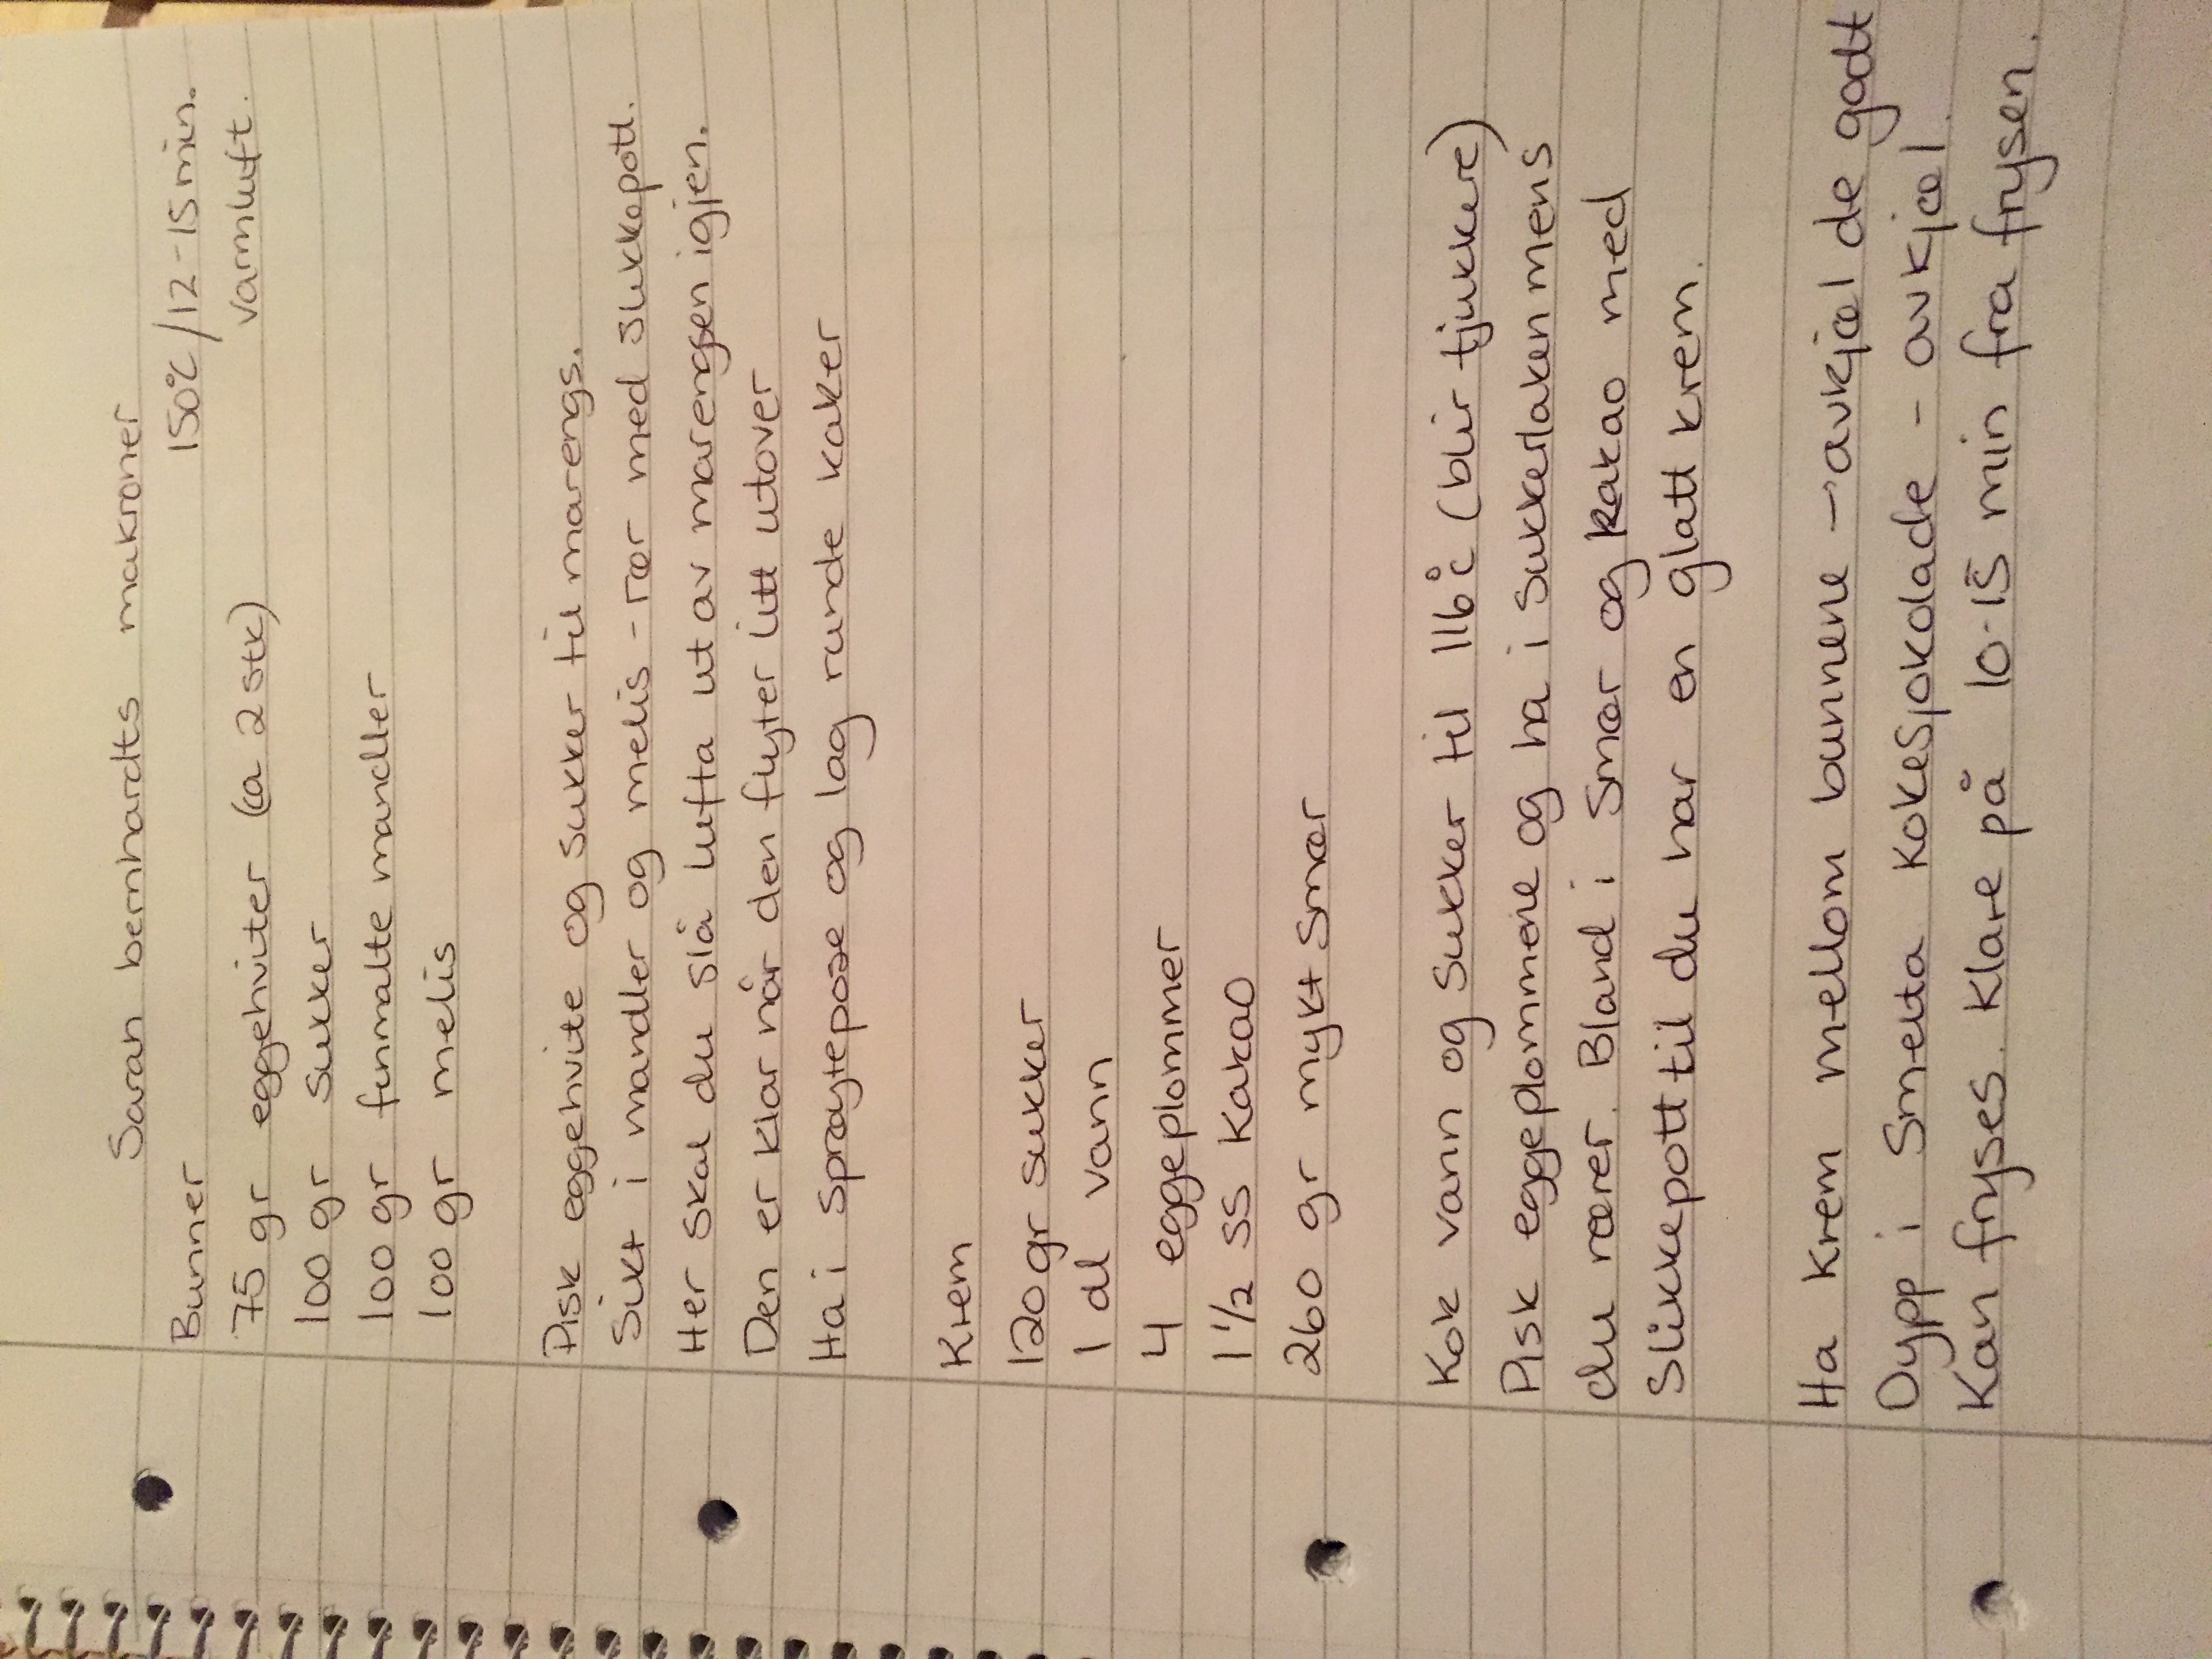 Sarah bernhardts makroner
Bunner 150°c/12-15 min.
75 gr eggehviter (ca 2 stk) varmluft.
100 gr sukker
100 gr finmalte mandler
100 gr melis
Pisk eggehvite og sukker til marengs.
Sikt i mandler og melis - rør med slikkepott.
Her skal du slå lufta ut av marengsen igjen.
Den er klar når den flyter litt utover
Ha i sprøytepose og lag runde kaker
Krem
120 gr sukker
1 dl vann
4 eggeplommer
1 1/2 ss kakao
260 gr mykt smør
Kok vann og sukker til 116°c (blir tjukkere)
Pisk eggeplommene og ha i sukkerlaken mens
du rører. Bland i smør og kakao med
slikkepott til du har en glatt krem.
Ha krem mellom bunnene → avkjøl de godt
Dypp i smelta kokesjokolade - avkjøl.
Kan fryses. Klare på 10-15 min fra frysen.